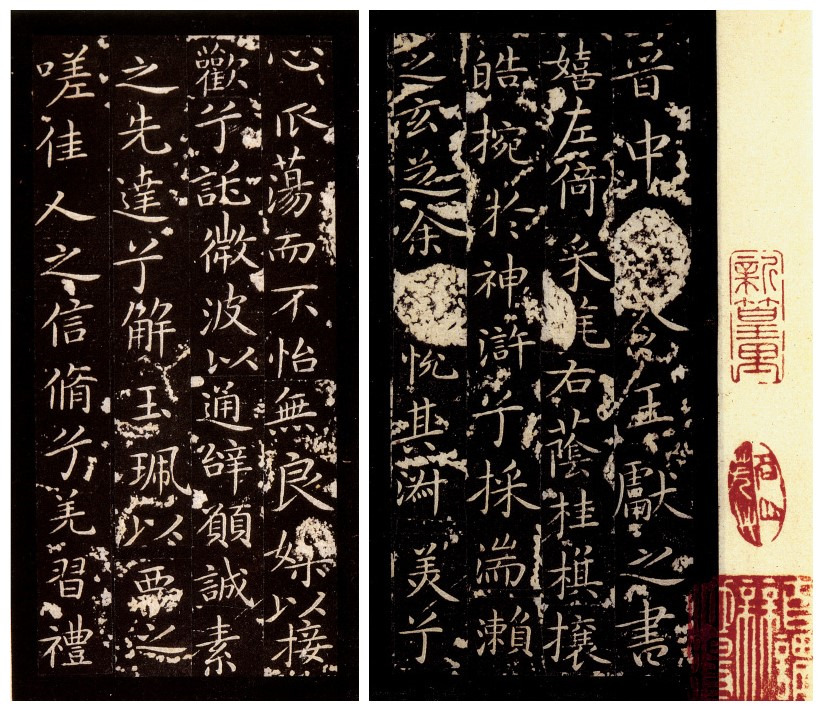 晋中令王獻之書
嬉左倚采旄右蔭桂棋攘
皓捥於神滸兮採湍瀨
之玄芝余悅其淑美兮
心爪蕩而不怡無良媒以接
歡兮託微波以通辭願誠素
之先達兮解玉珮以要之
嗟佳人之信脩兮羌習禮
新篁里